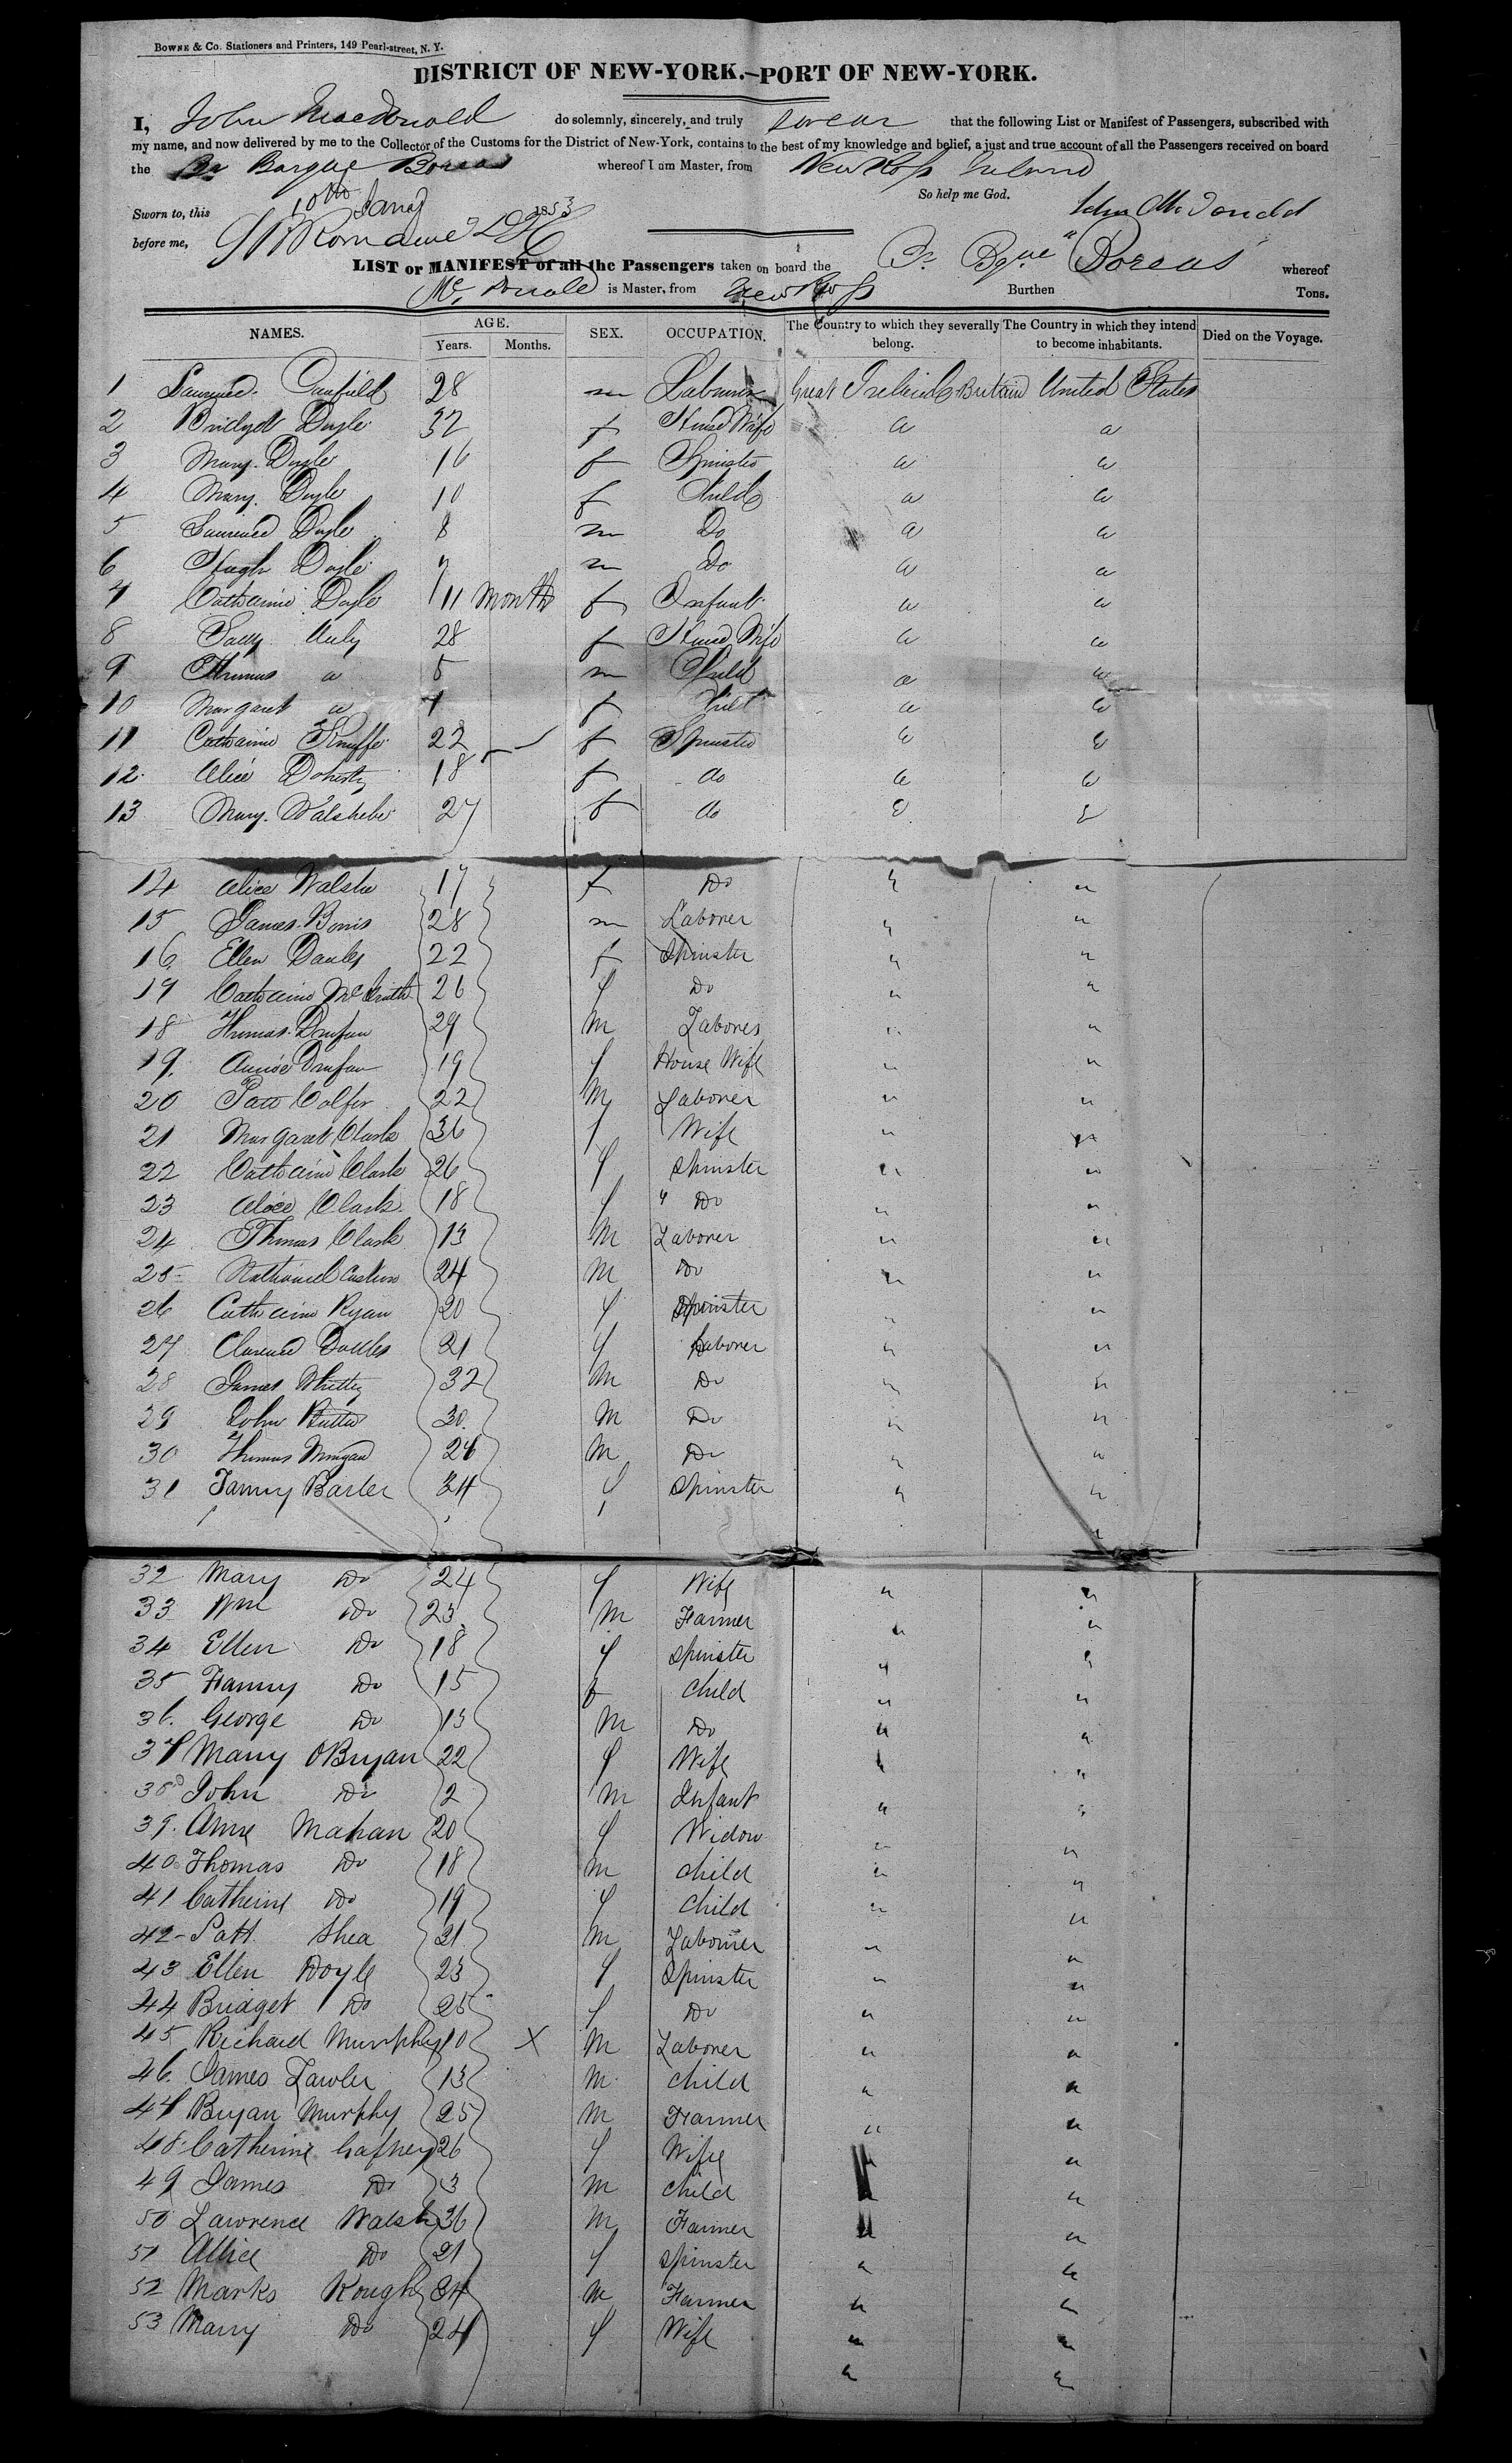 BOWNE & CO. Stationers and Printers, 149 Pearl-street, N. Y.
DISTRICT OF NEW-YORK.—PORT OF NEW-YORK.
I, John Macdonald do solemnly, sincerely, and truly swear that the following List or Manifest of Passengers, subscribed with
my name, and now delivered by me to the Collector of the Customs for the District of New-York, contains to the best of my knowledge and belief, a just and true account of all the Passengers received on board
the Br Barque Dorcas whereof I am Master, from New Ross Ireland
So help me God.
Sworn to, this 10th Jany 1853 John McDonald
before me,
LIST or MANIFEST of all the Passengers taken on board the Br Bque "Dorcas" whereof
McDonald is Master, from New Ross Burthen Tons.
NAMES. AGE. Years. Months. SEX. OCCUPATION. The Country to which they severally belong. The Country in which they intend to become inhabitants. Died on the Voyage.
1 Laurence Canfield 28 m Labourer Great Ireland Britain United States
2 Bridget Doyle 32 f House Wife " "
3 Mary Doyle 16 f Spinster " "
4 Mary Doyle 10 f Child " "
5 Laurence Doyle 8 m Do " "
6 Hugh Doyle m Do " "
7 Catharine Doyle 11 Month f Infant " "
8 28 f House Wife " "
9 Thomas " 5 m Child " "
10 Margaret " 1 f " "
11 Catharine 22 f Spinster " "
12 Alice Doherty 18 f do " "
13 Mary 27 f do " "
14 Alice Walsh 17 f Do " "
15 James 28 m Laborer " "
16 Ellen 22 f Spinster " "
17 Catharine 26 f Do " "
18 Thomas 29 M Laborer " "
19 19 f House Wife " "
20 Patt Colfer 22 M Laborer " "
21 Margaret Clark 36 f Wife " "
22 Catharine Clark 26 f Spinster " "
23 Alice Clark 18 f " Do " "
24 Thomas Clark 13 M Laborer " "
25 Nathaniel 24 M Do " "
26 Catharine Ryan 20 f Spinster " "
27 21 f Laborer " "
28 James Whitty 32 M Do " "
29 John Butler 30 M Do " "
30 Thomas 24 M Do " "
31 Fanny Barter 34 f Spinster " "
32 Mary Do 24 f Wife " "
33 Wm Do 23 M Farmer " "
34 Ellen Do 18 f Spinster " "
35 Fanny Do 15 f Child " "
36 George Do 13 M Do " "
37 Marry OBryan 22 f Wife " "
38 John Do 2 M Infant " "
39 Anne Mahan 20 f Widow " "
40 Thomas Do 18 M Child " "
41 Catherine Do 19 f Child " "
42 Patt Shea 21 M Labourer " "
43 Ellen Doyle 23 f Spinster " "
44 Bridget Do 25 f Do " "
45 Richard Murphy 10 X M Laborer " "
46 James Lawler 13 M Child " "
47 Bryan Murphy 25 M Farmer " "
48 Catherine Gafney 26 f Wife " "
49 James Do 3 M Child " "
50 Lawrence Walsh 36 M Farmer " "
51 Allice Do 21 f Spinster " "
52 Marks Kough 34 M Farmer " "
53 Marry Do 24 f Wife " "
" "